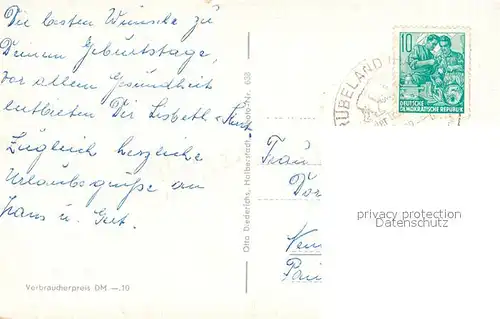 Die besten Wünsche zu
Deinem Geburtstage,
vor allem Gesundheit
entbieten Dir Lisbeth u. Kurt
Zugleich herzliche
Urlaubsgrüße an
Hans u.
Verbraucherpreis DM. —,10
Otto Diederichs, Halberstadt, 638
10
DEUTSCHE
DEMOKRATISCHE REPUBLIK
RÜBELAND
Frau
Dor
privacy protection
Datenschutz